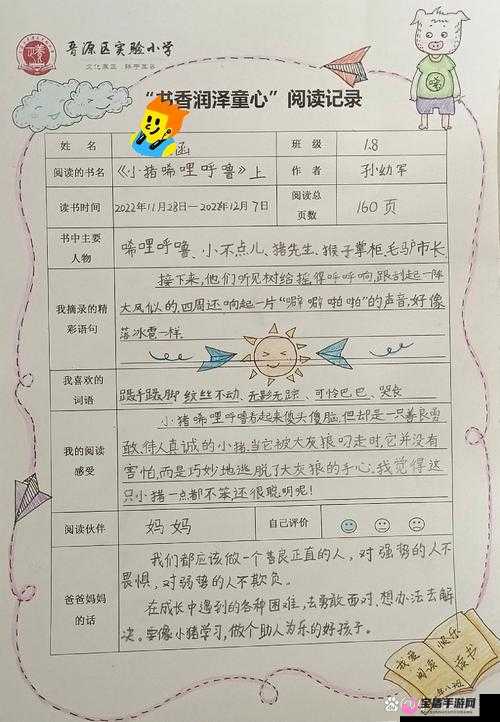 晋源区实验小学
“书香润泽童心”阅读记录
姓 名 涵 班 级 1.8
阅读的书名 《小猪唏哩呼噜》上 作 者 孙幼军
读书时间 2022年11月28日—2022年12月7日 阅读总页数 160页
书中主要人物 唏哩呼噜、小不点儿、猪先生、猴子掌柜、毛驴市长
我摘录的精彩语句
接下来,他们听见树给摇得呼呼响,跟刮起一阵
大风似的,四周还响起一片“噼噼啪啪”的声音,好像
落冰雹一样。
我喜欢的词语 蹑手蹑脚 纹丝不动、无影无踪、可怜巴巴、哭丧
我的阅读感受
小猪唏哩呼噜看起来傻头傻脑,但却是一只善良勇
敢、待人真诚的小猪,当它被大灰狼叼走时,它并没有
害怕,而是巧妙地逃脱了大灰狼的手心。我觉得这
只小猪一点都不笨还很聪明呢!
阅读伙伴 妈妈 自己评价
爸爸妈妈的话
我们都应该做一个善良正直的人,对强势的人不
畏惧,对弱势的人不欺负。
在成长中遇到的各种困难,去勇敢面对,想办法去解
决。要像小猪学习,做个助人为乐的好孩子。
我爱阅读
快乐读书
宝盾手游网